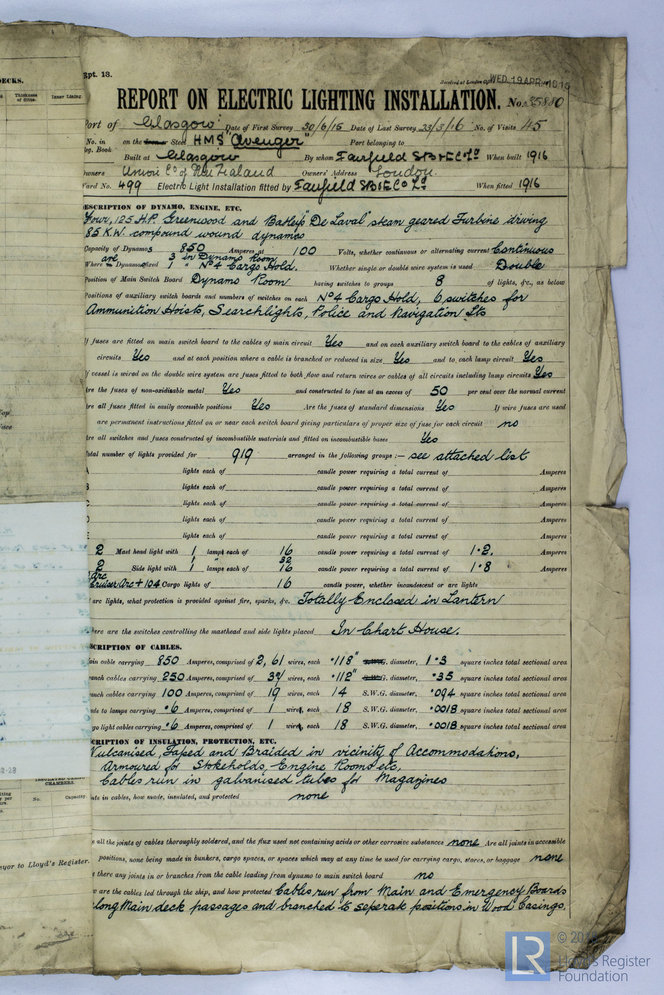 DECKS.
Thickness of Ribs.
Rpt. 13.
WED. 19 APR. 1916
REPORT ON ELECTRIC LIGHTING INSTALLATION. No. 35880
Port of Glasgow Date of First Survey 30/6/15 Date of Last Survey 23/3/16 No. of Visits 45
No. in on the Steel HMS "Avenger" Port belonging to
Reg. Book Built at Glasgow By whom Fairfield SB & E Co Ld When built 1916
Owners Union Co of New Zealand Owners' Address London.
Yard No. 499 Electric Light Installation fitted by Fairfield SB & E Co Ld When fitted 1916
DESCRIPTION OF DYNAMO, ENGINE, ETC.
Four, 125 H.P. Greenwood and Batley De Laval steam geared Turbine driving
85 K.W. compound wound dynamos
Capacity of Dynamos 850 Amperes at 100 Volts, whether continuous or alternating current Continuous
Where are Dynamos fixed 3 in Dynamo Room 1 " No 4 Cargo Hold. Whether single or double wire system is used Double
Position of Main Switch Board Dynamo Room having switches to groups 8 of lights, &c., as below
Positions of auxiliary switch boards and numbers of switches on each No 4 Cargo Hold, 6 switches for
Ammunition Hoists, Searchlights, Police and Navigation Lts
If fuses are fitted on main switch board to the cables of main circuit Yes and on each auxiliary switch board to the cables of auxiliary
circuits Yes and at each position where a cable is branched or reduced in size Yes and to each lamp circuit Yes
If vessel is wired on the double wire system are fuses fitted to both flow and return wires or cables of all circuits including lamp circuits Yes
Are the fuses of non-oxidizable metal Yes and constructed to fuse at an excess of 50 per cent over the normal current
Are all fuses fitted in easily accessible positions Yes Are the fuses of standard dimensions Yes If wire fuses are used
are permanent instructions fitted on or near each switch board giving particulars of proper size of fuse for each circuit no
Are all switches and fuses constructed of incombustible materials and fitted on incombustible bases Yes
Total number of lights provided for 919 arranged in the following groups :— see attached list
A lights each of candle power requiring a total current of Amperes
B lights each of candle power requiring a total current of Amperes
C lights each of candle power requiring a total current of Amperes
D lights each of candle power requiring a total current of Amperes
E lights each of candle power requiring a total current of Amperes
2 Mast head light with 1 lamps each of 16 candle power requiring a total current of 1·2. Amperes
2 Side light with 1 lamps each of 32 16 candle power requiring a total current of 1·8 Amperes
Arc + 104 Cargo lights of 16 candle power, whether incandescent or arc lights
If arc lights, what protection is provided against fire, sparks, &c. Totally Enclosed in Lantern
Where are the switches controlling the masthead and side lights placed In Chart House.
DESCRIPTION OF CABLES.
Main cable carrying 850 Amperes, comprised of 2, 61 wires, each ·118" diameter, 1·3 square inches total sectional area
Branch cables carrying 250 Amperes, comprised of 37 wires, each ·112" diameter, ·35 square inches total sectional area
Branch cables carrying 100 Amperes, comprised of 19 wires, each 14 S.W.G. diameter, ·094 square inches total sectional area
Leads to lamps carrying ·6 Amperes, comprised of 1 wires, each 18 S.W.G. diameter, ·0018 square inches total sectional area
Cargo light cables carrying ·6 Amperes, comprised of 1 wires, each 18 S.W.G. diameter, ·0018 square inches total sectional area
DESCRIPTION OF INSULATION, PROTECTION, ETC.
Vulcanised, Taped and Braided in vicinity of Accommodations,
Armoured for Stokeholds, Engine Rooms etc,
Cables run in galvanised tubes for Magazines
Joints in cables, how made, insulated, and protected none
Are all the joints of cables thoroughly soldered, and the flux used not containing acids or other corrosive substances none Are all joints in accessible
positions, none being made in bunkers, cargo spaces, or spaces which may at any time be used for carrying cargo, stores, or baggage none
Are there any joints in or branches from the cable leading from dynamo to main switch board no
How are the cables led through the ship, and how protected Cables run from Main and Emergency Boards
along Main deck passages and branched to seperate positions in Wood Casings.
No. Capacity
Surveyor to Lloyd's Register.
LR
Lloyd's Register
Foundation